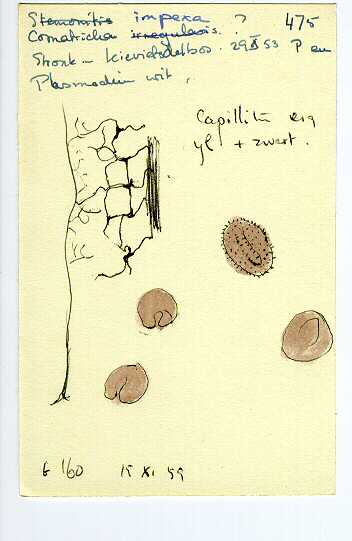 Stemonitis impexa ? 475
Comatricha irregularis.
Stronk - Kievietsdelbos. 29 X 53 P en
Plasmodium wit.
Capillit. erg
ijl + zwart.
160 15 XI 59